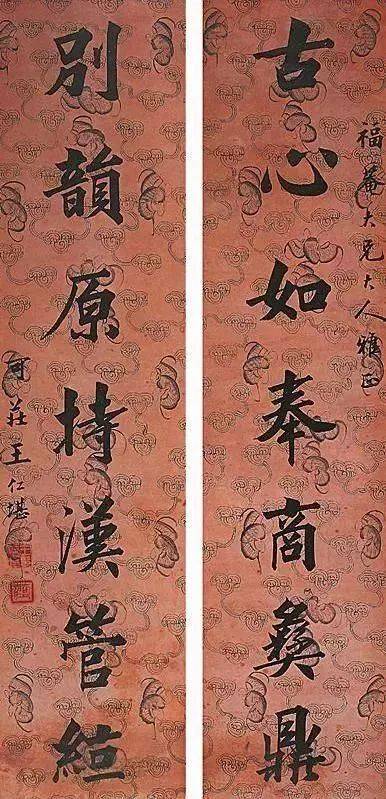 福菴大兄大人雅正
古心如奉商彝鼎
別韻原持漢管
可莊王仁堪